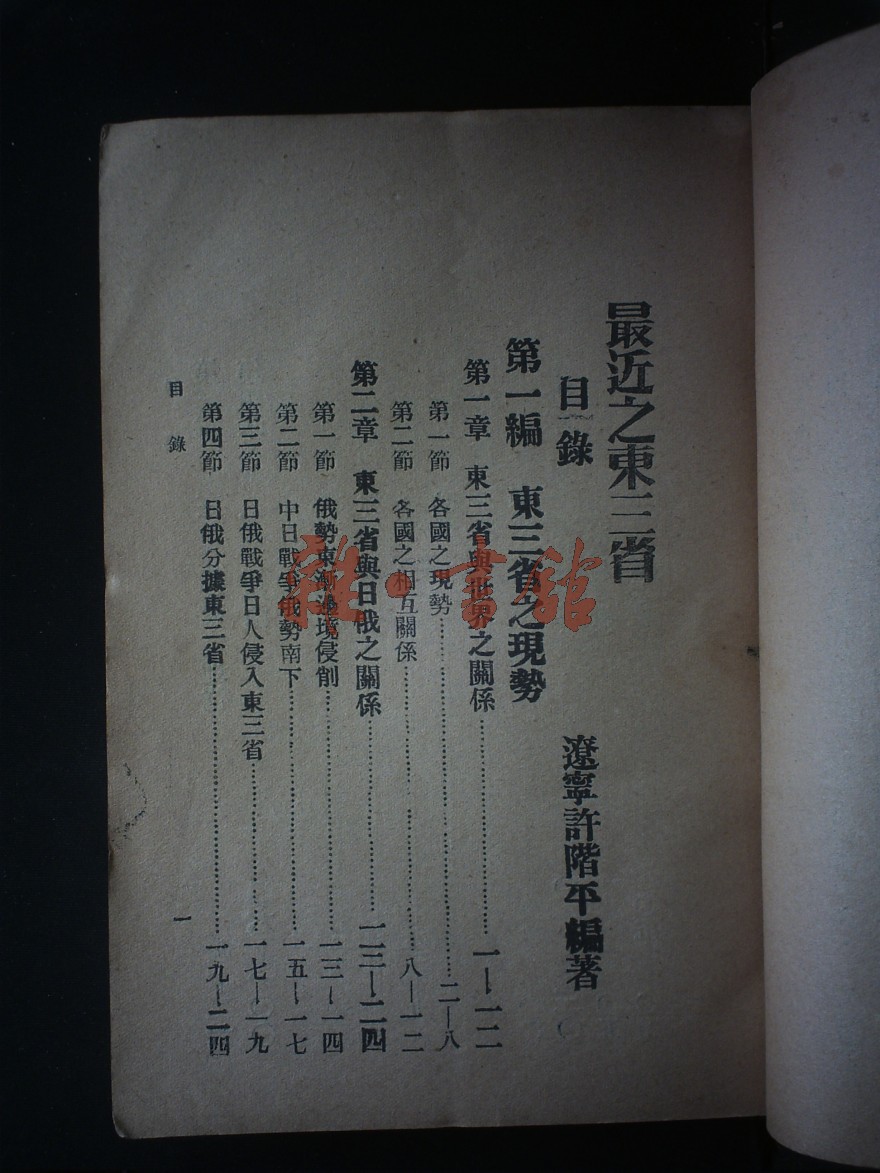 最近之東三省
目錄
遼寧許階平編著
第一編 東三省之現勢
第一章 東三省與世界之關係 一—一二
第一節 各國之現勢 二—八
第二節 各國之相互關係 八—一二
第二章 東三省與日俄之關係 一三—二四
第一節 俄勢東漸邊境侵削 一三—一四
第二節 中日戰爭俄勢南下 一五—一七
第三節 日俄戰爭日人侵入東三省 一七—一九
第四節 日俄分據東三省 一九—二四
目錄
一